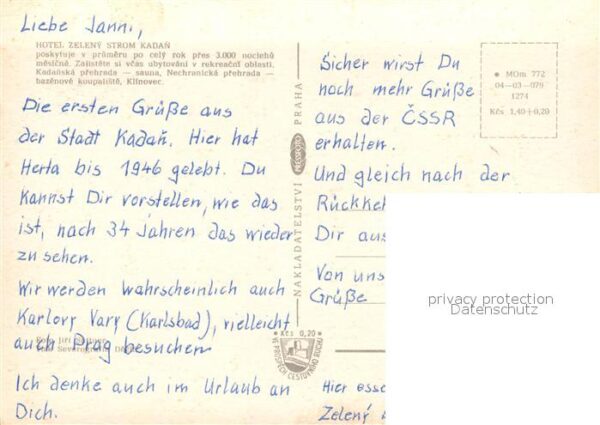 Liebe Janni,
HOTEL ZELENÝ STROM KADAŇ
poskytuje v průměru po celý rok přes 3.000 noclehů
měsíčně. Zajistěte si včas ubytování v rekreační oblasti.
Kadaňská přehrada — sauna, Nechranická přehrada —
bazénové koupaliště, Klínovec.
Die ersten Grüße aus
der Stadt Kadaň. Hier hat
Herta bis 1946 gelebt. Du
kannst Dir vorstellen, wie das
ist, nach 34 Jahren das wieder
zu sehen.
Wir werden wahrscheinlich auch
Karlovy Vary (Karlsbad), vielleicht
auch Prag besuchen
Ich denke auch im Urlaub an
Dich.
NAKLADATELSTVÍ PRESSFOTO PRAHA
Kčs 0,20
VE PROSPĚCH CESTOVNÍHO RUCHU
Sicher wirst Du
noch mehr Grüße
aus der ČSSR
erhalten.
Und gleich nach der
Dir aus
Von uns
Grüße
Hier
Zelený
MOm 772
04—03—079
1274
Kčs 1,40+0,20
privacy protection
Datenschutz